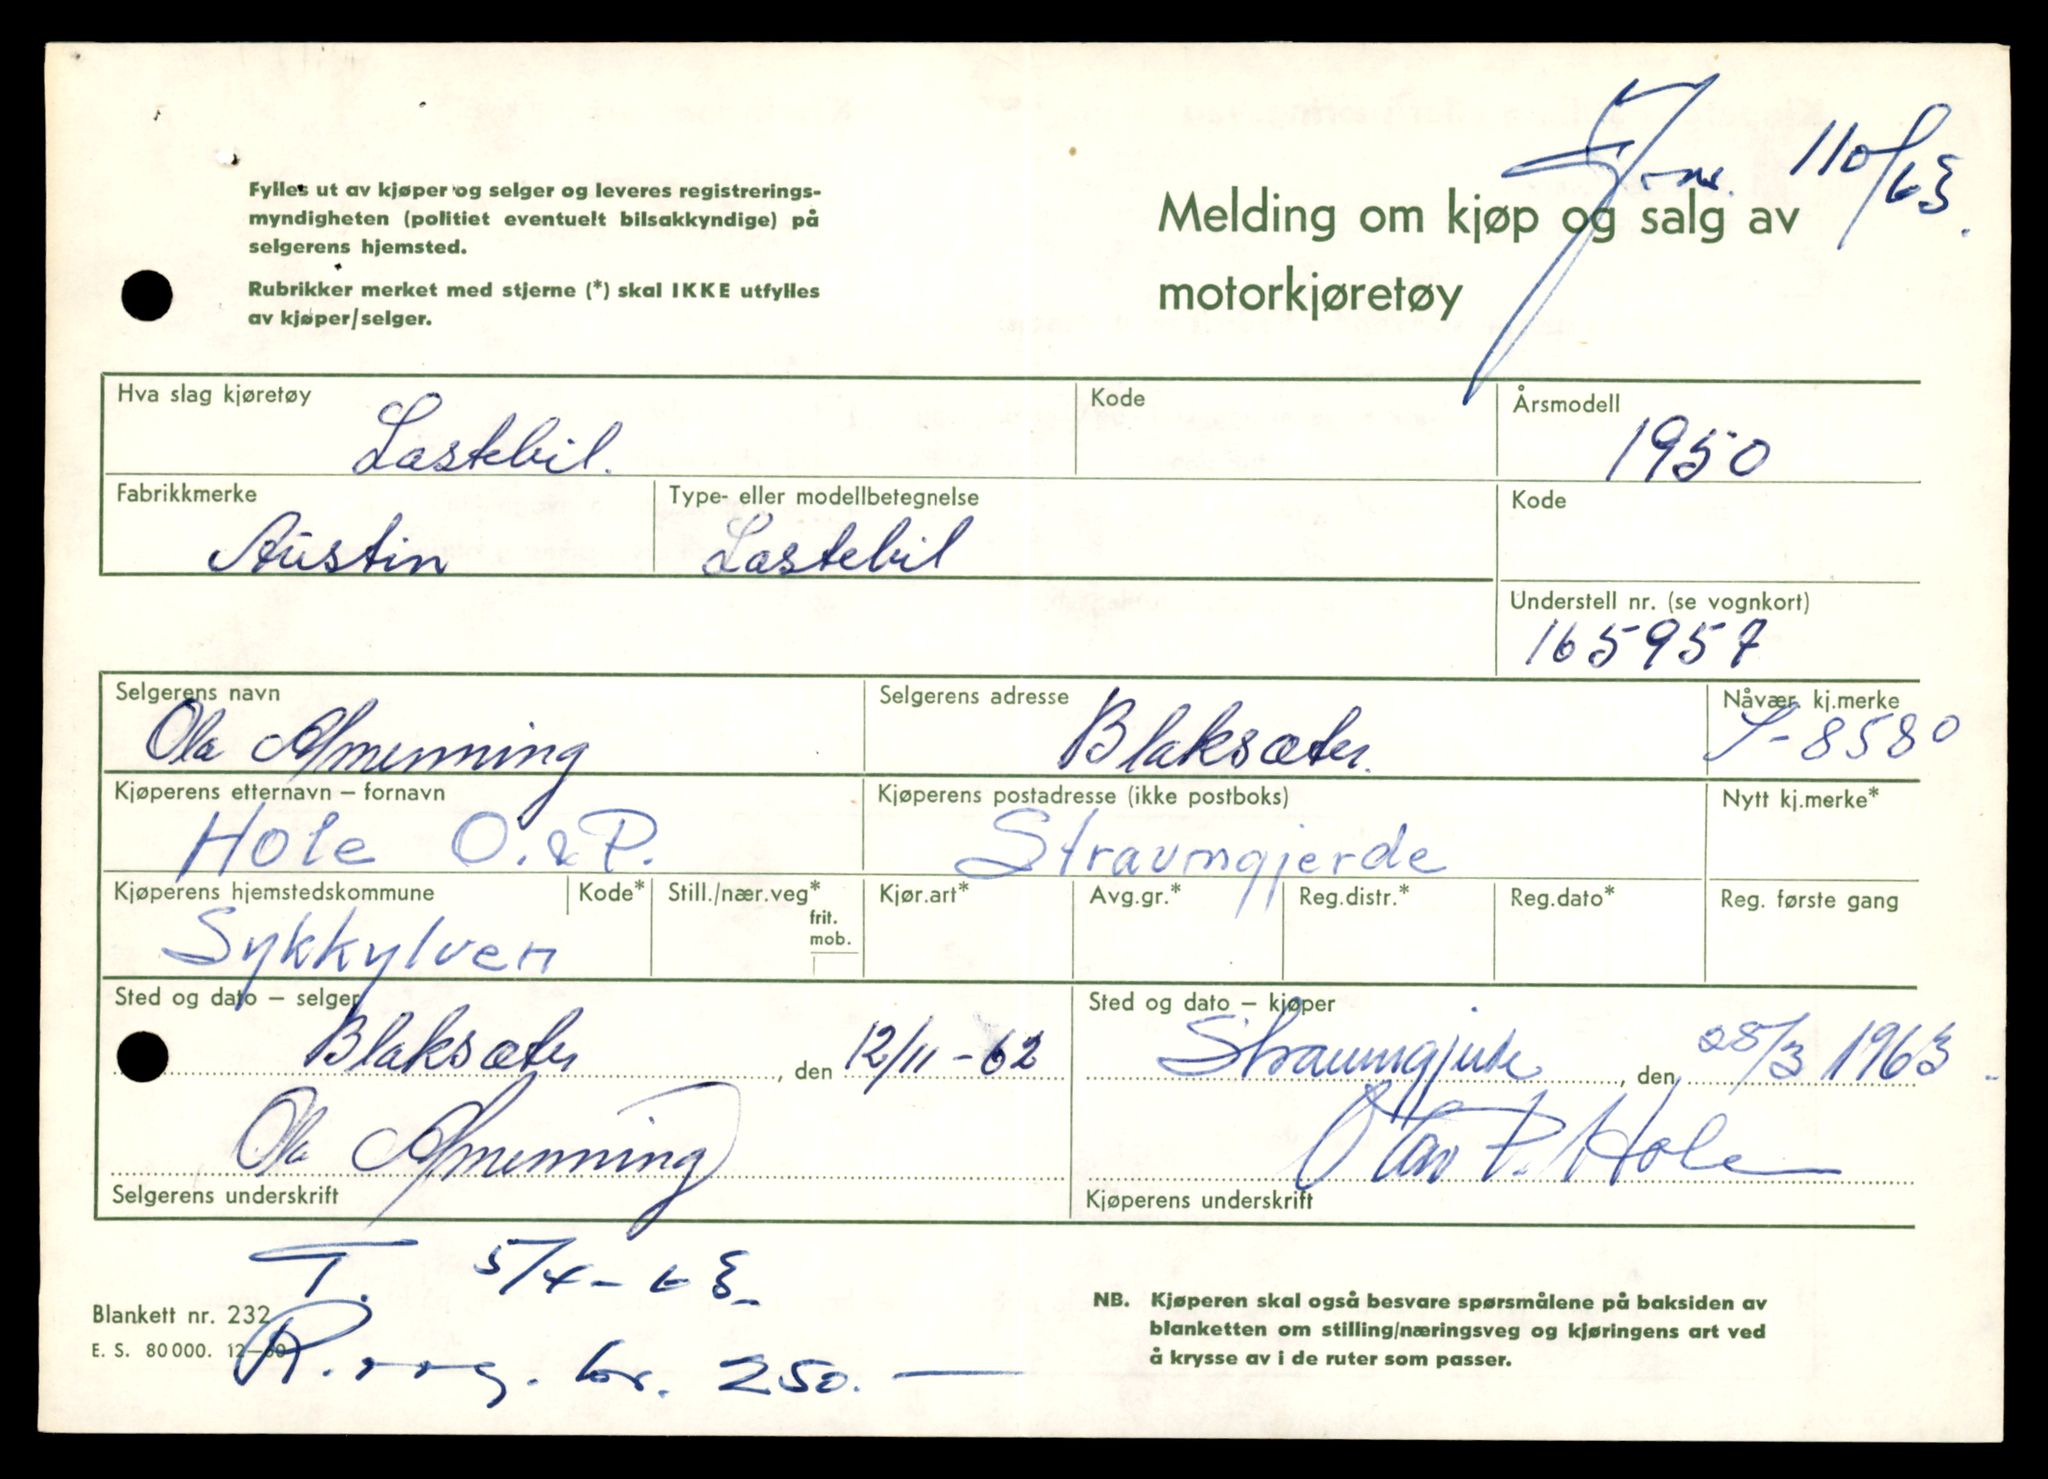 J.nr. 110/63.
Fylles ut av kjøper og selger og leveres registrerings-
myndigheten (politiet eventuelt bilsakkyndige) på
selgerens hjemsted.
Rubrikker merket med stjerne (*) skal IKKE utfylles
av kjøper/selger.
Melding om kjøp og salg av
motorkjøretøy
Hva slag kjøretøy
Lastebil.
Kode
Årsmodell
1950
Fabrikkmerke
Austin
Type- eller modellbetegnelse
Lastebil
Kode
Understell nr. (se vognkort)
165957
Selgerens navn
Ola Almenning
Selgerens adresse
Blaksæter.
Nåvær. kj.merke
S-8580
Kjøperens etternavn – fornavn
Hole O. & P.
Kjøperens postadresse (ikke postboks)
Straumgjerde
Nytt kj.merke*
Kjøperens hjemstedskommune
Sykkylven
Kode*
Still./nær.veg*
frit.
mob.
Kjør.art*
Avg.gr.*
Reg.distr.*
Reg.dato*
Reg. første gang
Sted og dato – selger
Blaksæter, den 12/11-62
Ola Almenning
Selgerens underskrift
Sted og dato – kjøper
Straumgjerde, den 28/3 1963.
Olav P. Hole
Kjøperens underskrift
T. 5/4-63.
Blankett nr. 232
E. S. 80000. 12–60
kr. 250.—
NB. Kjøperen skal også besvare spørsmålene på baksiden av
blanketten om stilling/næringsveg og kjøringens art ved
å krysse av i de ruter som passer.